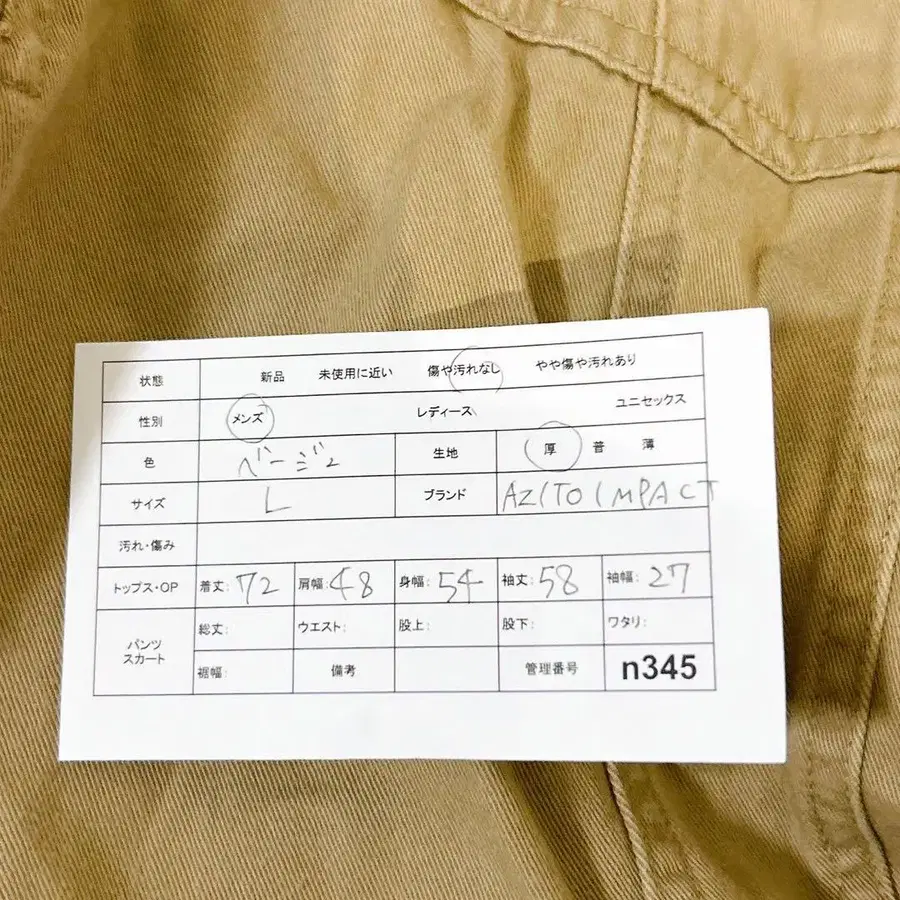 状態 新品 未使用に近い 傷や汚れなし やや傷や汚れあり
性別 メンズ レディース ユニセックス
色 ベージュ 生地 厚 普 薄
サイズ L ブランド AZITO IMPACT
汚れ・傷み
トップス・OP 着丈:72 肩幅:48 身幅:54 袖丈:58 袖幅:27
パンツ
スカート
総丈: ウエスト: 股上: 股下: ワタリ:
裾幅: 備考 管理番号 n345